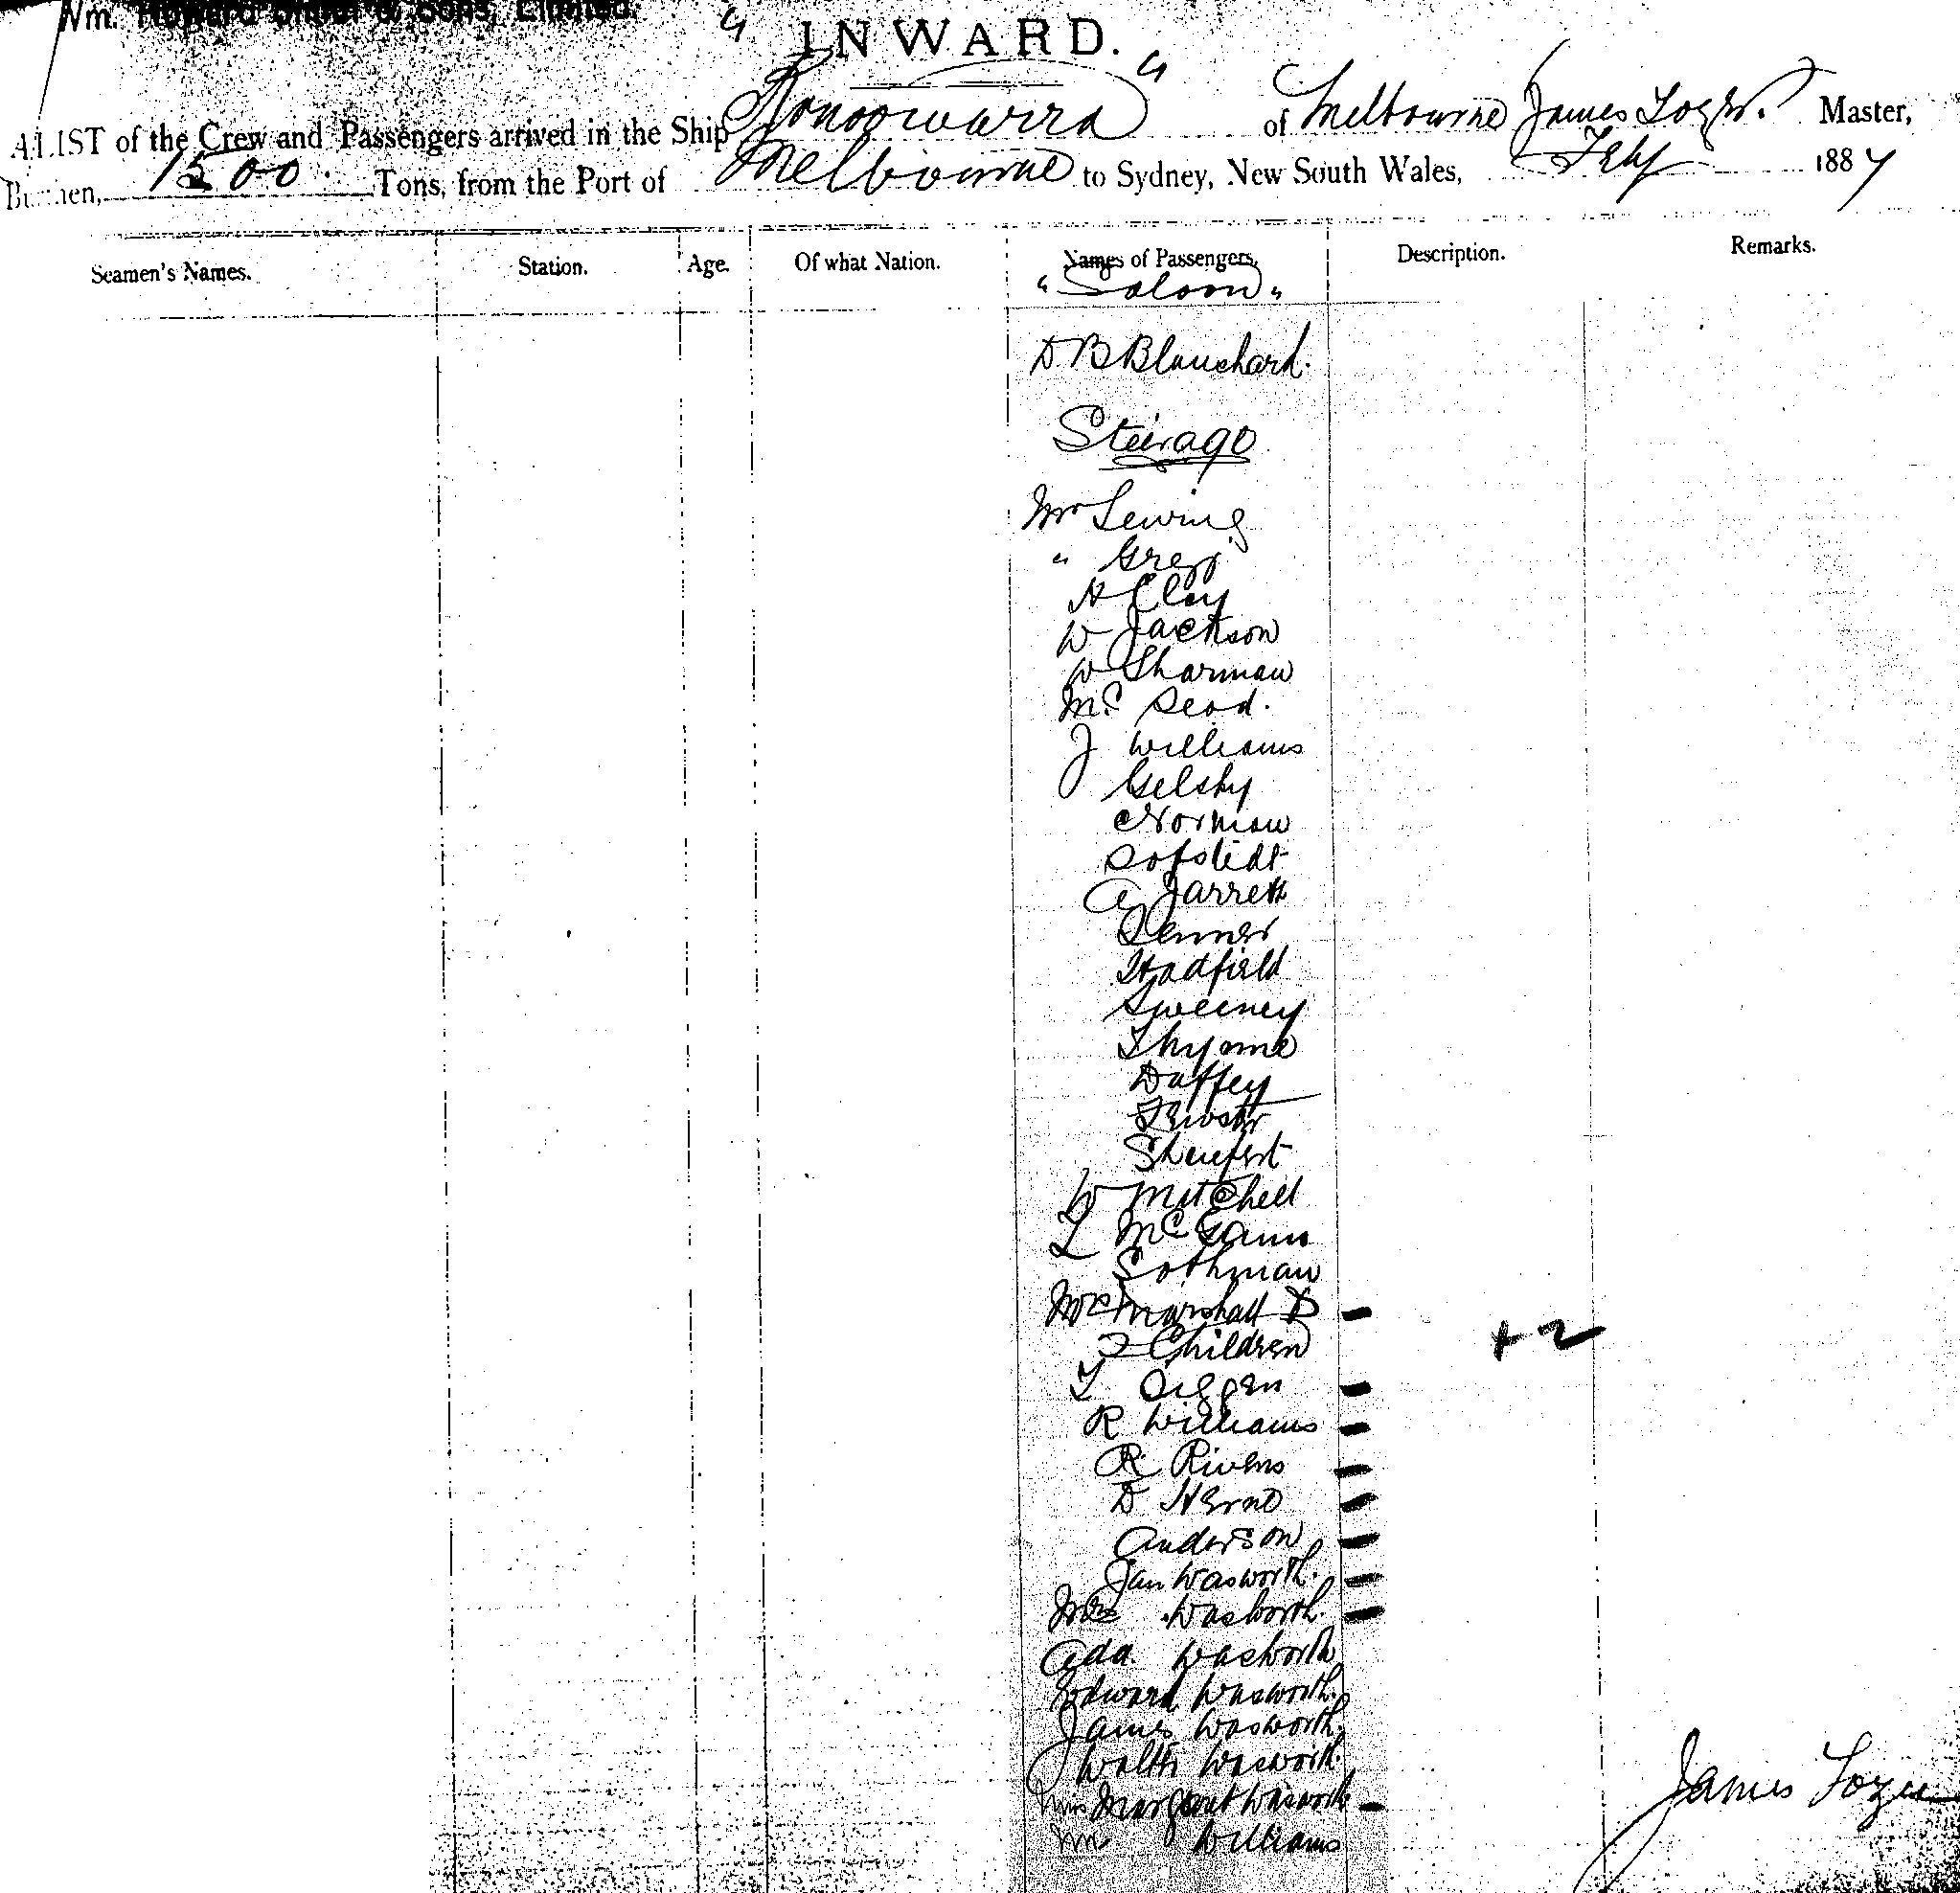 Wm. Howard Smith & Sons, Limited.
" INWARD. "
A LIST of the Crew and Passengers arrived in the Ship Konoowarra of Melbourne James Master,
Burthen, 1500 Tons, from the Port of Melbourne to Sydney, New South Wales, Feby 1887
Seamen's Names. Station. Age. Of what Nation. Names of Passengers. Description. Remarks.
"Saloon"
D B Blanchard.
Steerage
Mr Lewing
" Gregg
H Clay
W Jackson
W Sharman
J Williams
Gelshy
Norman
Sofstedt
A Jarrett
Jenner
Hadfield
Sweeney
Thynne
Duffey
W Mitchell
L McGann
Sothman
Marshall
2 Children +2
R Williams
R Rivens
D
Anderson
Jan Wasworth.
Mrs Wasworth.
Ada Wasworth
Edward Wasworth.
James Wasworth.
Walter Wasworth.
Margaret Wasworth
Williams
James